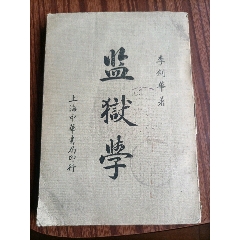 李剑華著
監獄學
上海中華書局印行